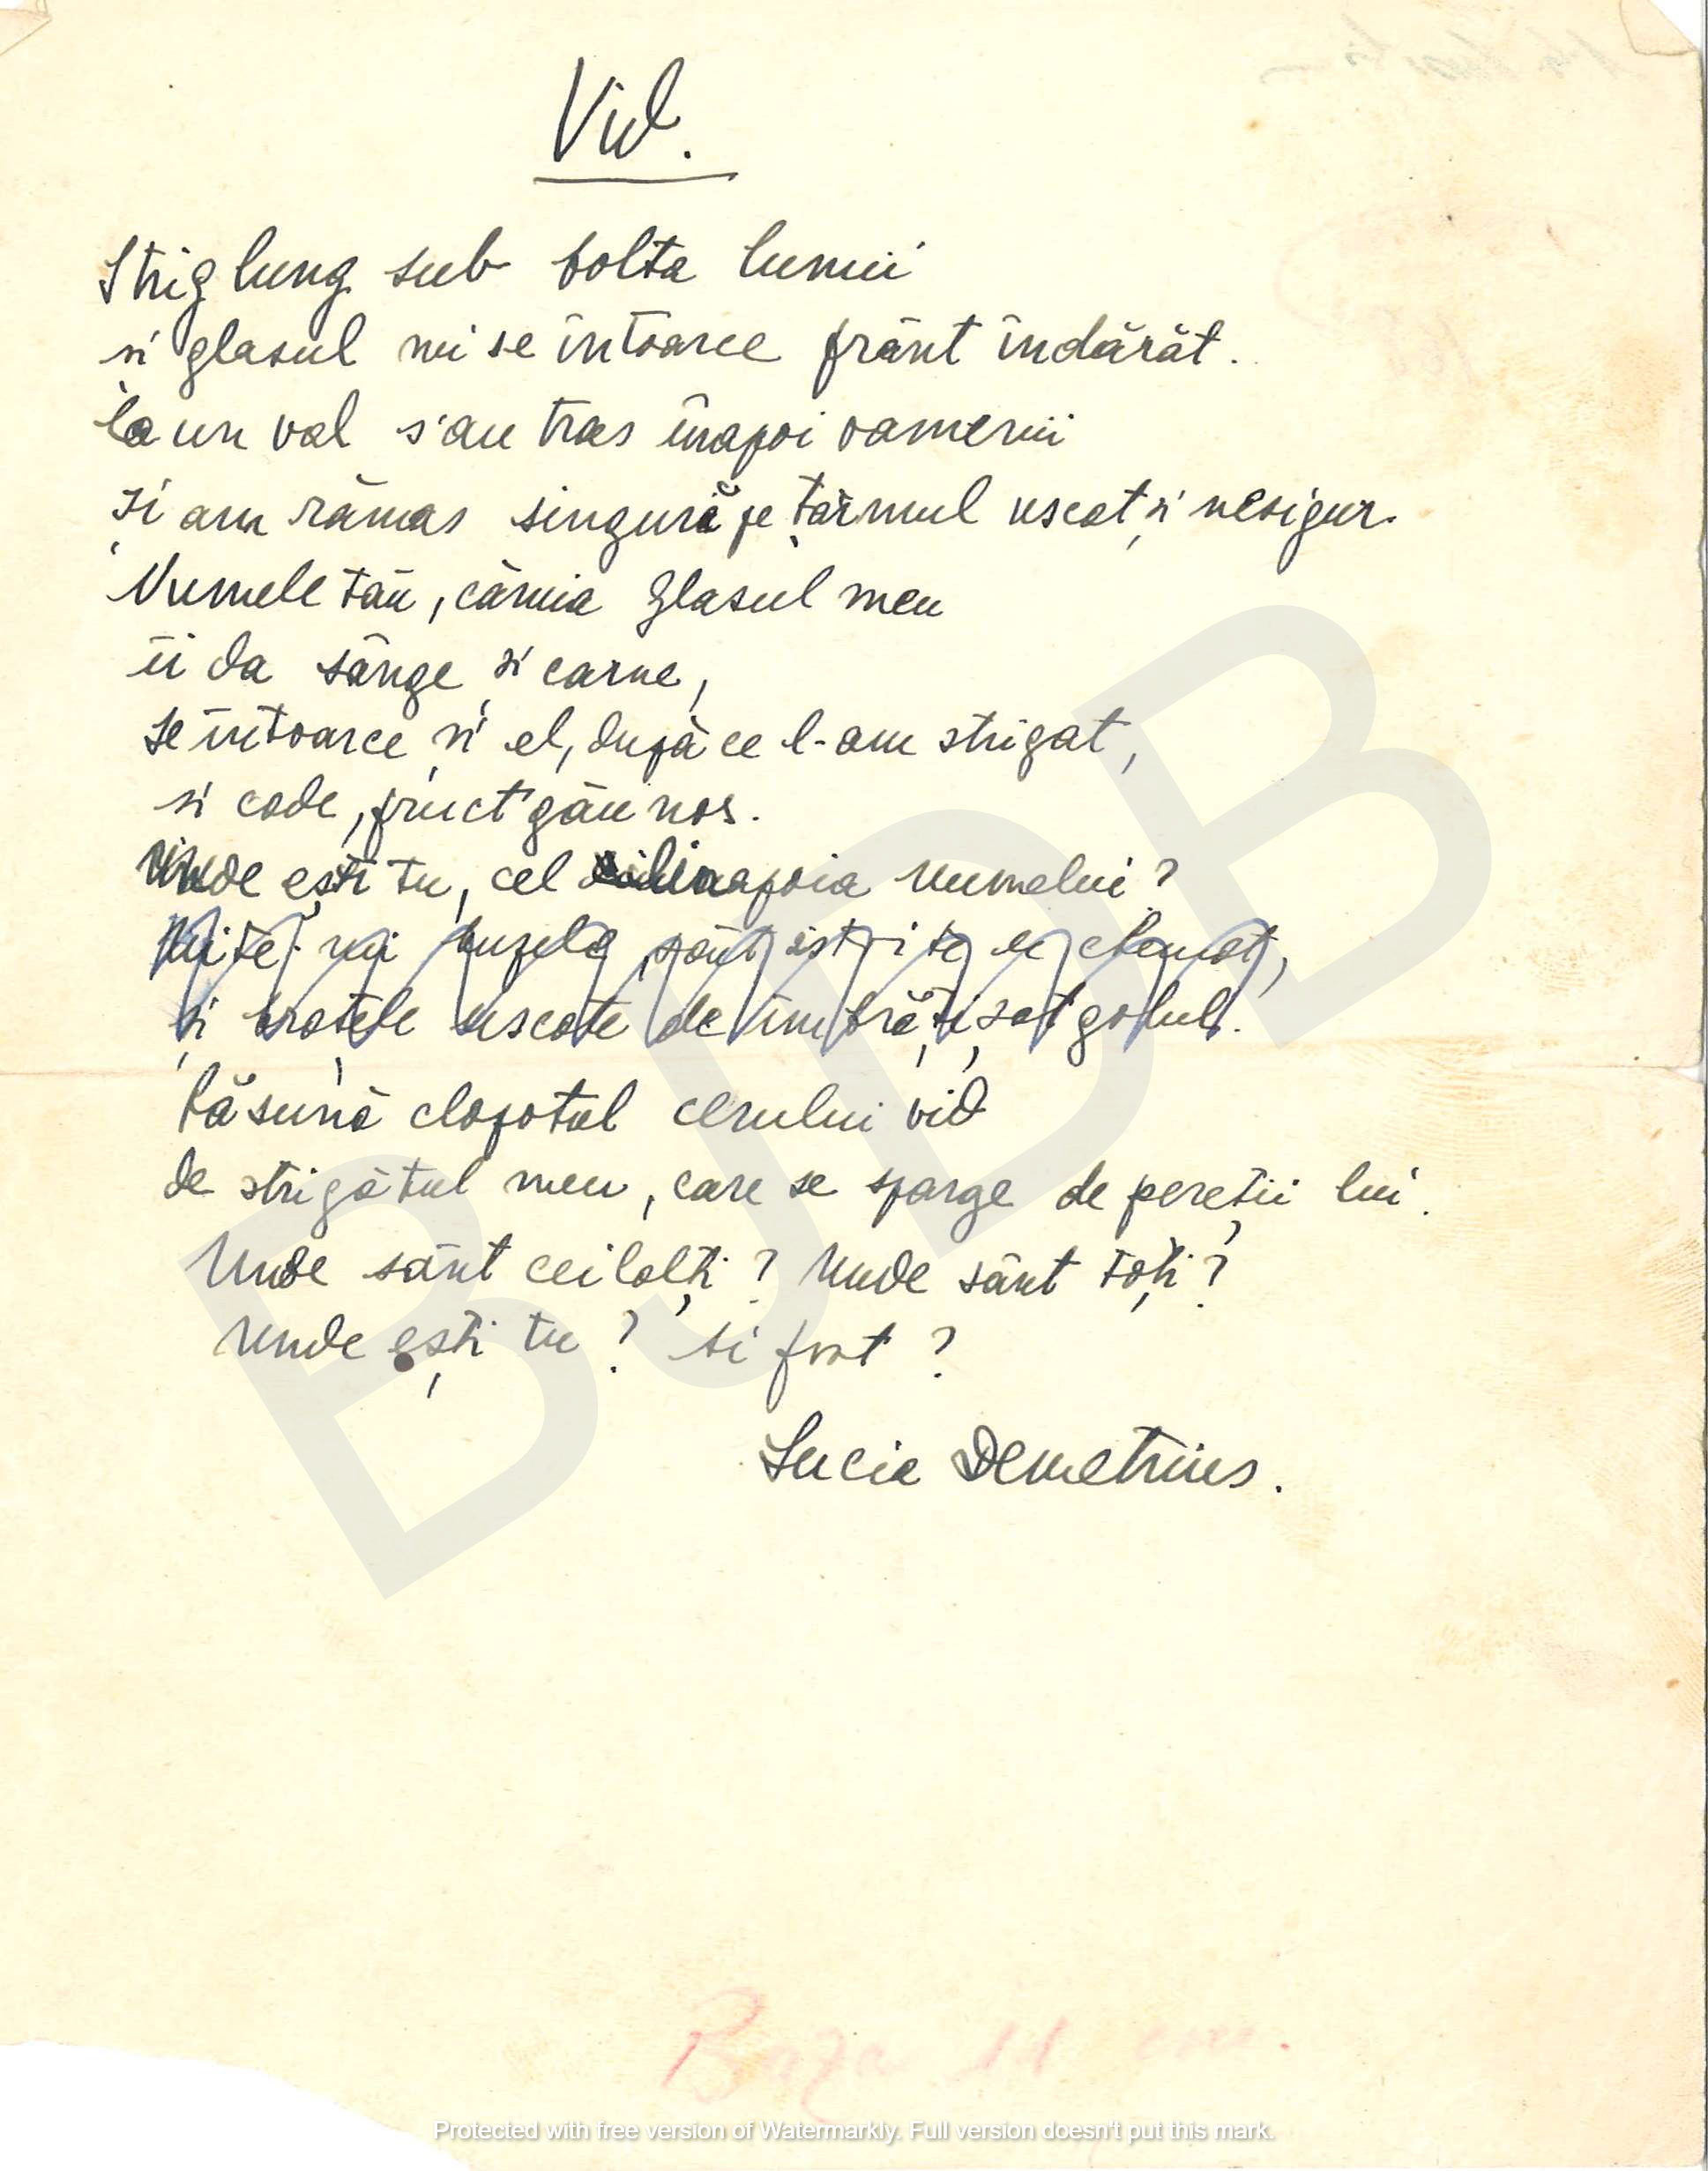 Vid.
Strig lung sub bolta lumii
și glasul mi se întoarce frânt îndărăt.
Ca un val s'au tras înapoi oamenii
și am rămas singură pe țărmul uscat și nesigur.
Numele tău, căruia glasul meu
îi da sânge și carne,
se întoarce și el, după ce l-am strigat,
și cade, fruct găunos.
Unde ești tu, cel dinapoia numelui?
buzele sânt istovite de chemat,
și brațele uscate de îmbrățișat golul.
Răsună clopotul cerului vid
de strigătul meu, care se sparge de pereții lui.
Unde sânt ceilalți? Unde sânt toți?
Unde ești tu? Ai fost?
Lucia Demetrius.
Baza 11 cm.
BJDB
Protected with free version of Watermarkly. Full version doesn't put this mark.